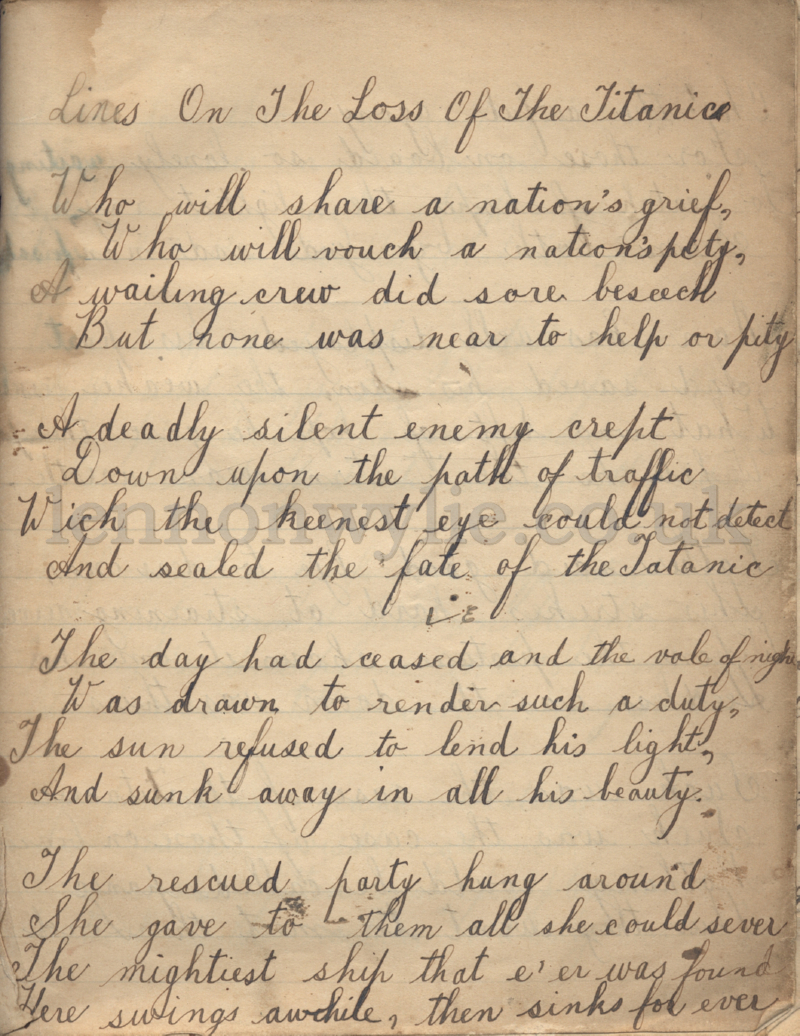 Lines On The Loss Of The Titanic
Who will share a nation's grief,
Who will vouch a nation's pety,
A wailing crew did sore beseech
But none was near to help or pity
A deadly silent enemy crept
Down upon the path of traffic
Wich the keenest eye could not detect
And sealed the fate of the Tatanic
The day had ceased and the vale of night
Was drawn to render such a duty,
The sun refused to lend his light,
And sunk away in all his beauty.
The rescued party hung around
She gave to them all she could sever
The mightiest ship that e'er was found
Here swings awhile, then sinks for ever
lennonwylie.co.uk